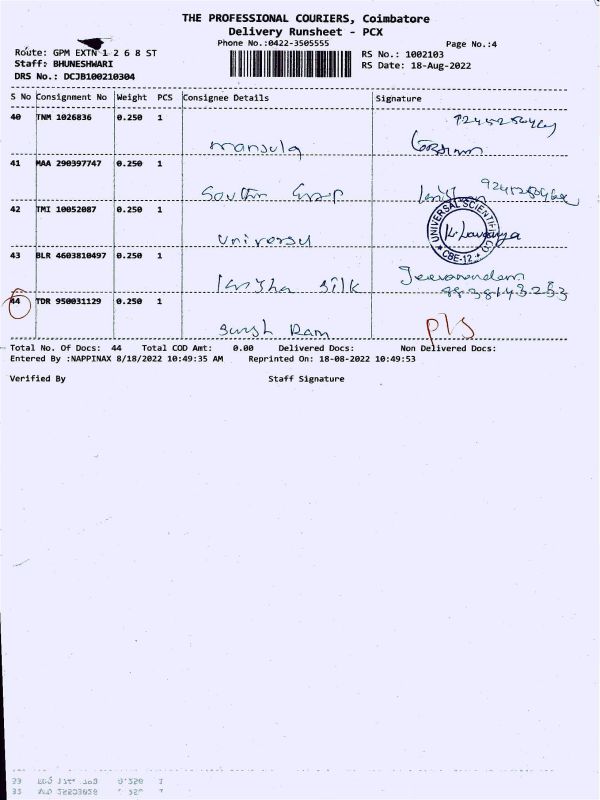 THE PROFESSIONAL COURIERS, Coimbatore
Delivery Runsheet - PCX
Phone No.:0422-3505555
Page No.:4
Route: GPM EXTN 1 2 6 8 ST
RS No.: 1002103
Staff: BHUNESHWARI
RS Date: 18-Aug-2022
DRS No.: DCJB100210304
S No Consignment No Weight PCS Consignee Details Signature
40 TNM 1026836 0.250 1
manjula
41 MAA 290397747 0.250 1
South
42 TMI 10052087 0.250 1
Universl
UNIVERSAL SCIENTIFIC CO
CBE-12
K. Lavanya
43 BLR 4603810497 0.250 1
silk
Jeevanandam
44 TDR 950031129 0.250 1
Ram
Total No. Of Docs: 44 Total COD Amt: 0.00 Delivered Docs: Non Delivered Docs:
Entered By :NAPPINAX 8/18/2022 10:49:35 AM Reprinted On: 18-08-2022 10:49:53
Verified By Staff Signature